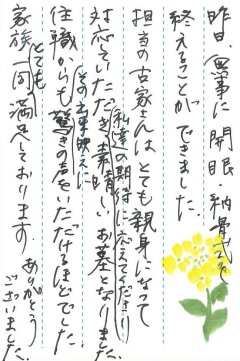 昨日、無事に開眼・納骨式を
終えることができました。
担当の古家さんはとても親身になって
対応していただき私達の期待に応えてくださり素晴しいお墓となりました。
住職からもその出来映えに驚きの声をいただけるほどでした。
家族一同とても満足しております。
ありがとう
ございました。